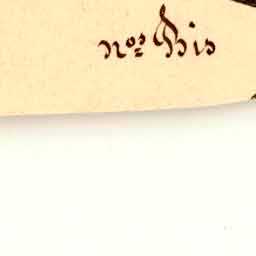 nos bis